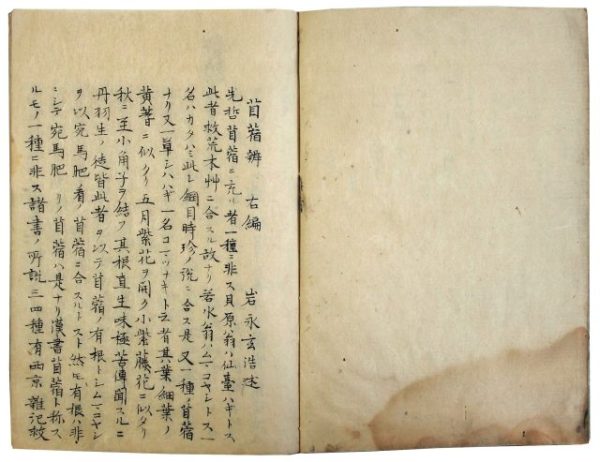 苜蓿辨 古編 岩永玄浩述
先哲苜蓿ニ充ル者一種ニ非ス貝原翁ハ仙臺ハギトス
此者救荒本艸ニ合スル故ナリ若水翁ハムマコヤシトス一
名ハカタハミ此レ綱目時珍ノ説ニ合ス是又一種ノ苜蓿
ナリ又一単シハハギ一名コマツナキト云者其葉ノ細葉ノ
黄蓍ニ似タリ五月紫花ヲ開ク小紫藤花ニ似タリ
秋ニ至小角子ヲ結フ其根直生味極苦傳聞スルニ
丹羽生ノ徒皆此者ヲ以テ苜蓿ノ有根トシムマコヤシ
ヲ以宛馬肥者ノ苜蓿ニ合スルトスト然モ有根ハ非
ニシテ宛馬肥リノ苜蓿ハ是ナリ漢書苜蓿ト称ス
ルモノ一種ニ非ス諸書ノ所説三四種有西京雜記救